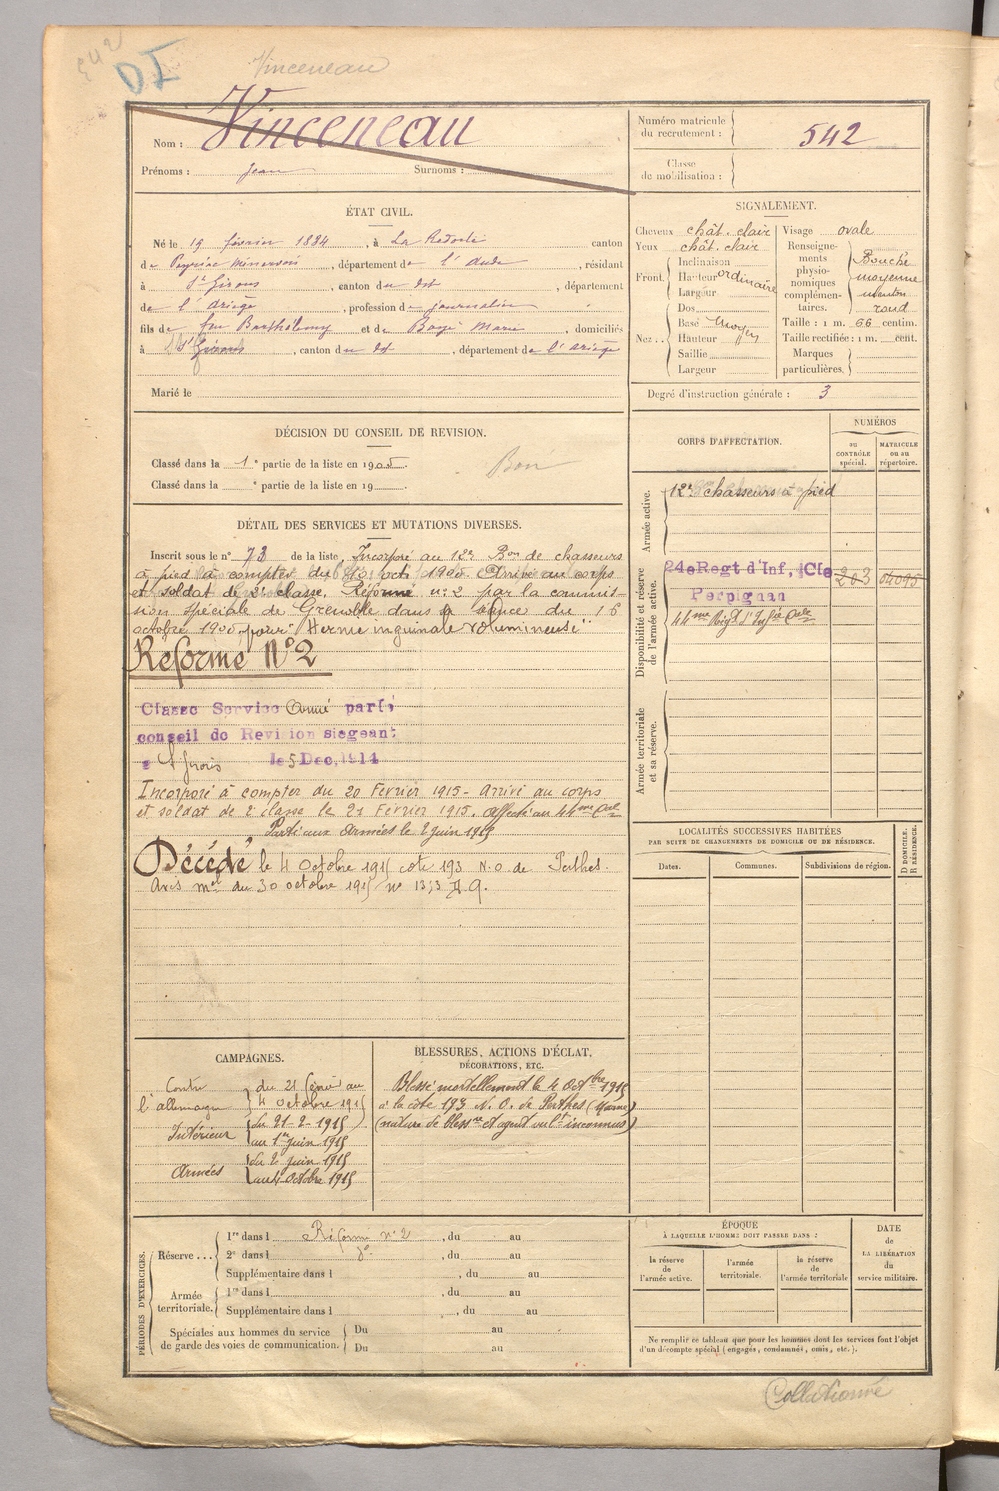 542
DI
Vinceneau
Nom : Vinceneau
Prénoms : Jean Surnoms :
Numéro matricule du recrutement : 542
Classe de mobilisation :
ÉTAT CIVIL.
Né le 19 février 1884, à La Redorte canton
de Peyriac Minervois, département de l'Aude, résidant
à St Girons, canton du dt, département
de l'Ariège, profession de journalier
fils de feu Barthélemy et de Marie, domiciliés
à St Girons, canton du dt, département de l'Ariège
Marié le
SIGNALEMENT.
Cheveux chât. clair
Yeux chât. clair
Front. Inclinaison
Hauteur ordinaire
Largeur
Nez.. Dos
Base moyen
Hauteur
Saillie
Largeur
Visage ovale
Renseignements physionomiques complémentaires. Bouche
moyenne
menton
rond
Taille : 1 m. 66 centim.
Taille rectifiée : 1 m. cent.
Marques particulières.
Degré d'instruction générale : 3
DÉCISION DU CONSEIL DE REVISION.
Classé dans la 1e partie de la liste en 1905.
Classé dans la e partie de la liste en 19
Bon
DÉTAIL DES SERVICES ET MUTATIONS DIVERSES.
Inscrit sous le n° 73 de la liste Incorporé au 12e Bon de chasseurs
à pied à compter du oct 1905. Arrivé au corps
et soldat de 2e classe. Réformé n: 2 par la commis-
sion spéciale de Grenoble dans sa séance du 16
octobre 1905, pour "Hernie inguinale volumineuse".
Réformé N° 2
Classé Service Armé par le
conseil de Revision siegeant
a St Girons le 5 Dec, 1914
Incorporé à compter du 20 Février 1915 - Arrivé au corps
et soldat de 2e classe le 21 Février 1915. affecté au 44me Cal
Parti aux armées le 2 juin 1915
Décédé le 4 Octobre 1915 cote 193 N.O. de Perthes.
Avis mel du 30 octobre 1915 n°
CORPS D'AFFECTATION.
NUMÉROS
au CONTRÔLE spécial.
MATRICULE ou au répertoire.
Armée active.
12e chasseurs à pied
Disponibilité et réserve de l'armée active.
24e Regt d'Inf, Cle 263 04095
Perpignan
44me Régt d'Infie Cale
Armée territoriale et sa réserve.
LOCALITÉS SUCCESSIVES HABITÉES
PAR SUITE DE CHANGEMENTS DE DOMICILE OU DE RÉSIDENCE.
Dates. Communes. Subdivisions de région.
D DOMICILE.
R RÉSIDENCE.
CAMPAGNES.
Contre l'allemagne du 21 février au
4 octobre 1915
Intérieur du 21-2-1915
au 1er juin 1915
Armées du 2 juin 1915
au 4 Octobre 1915
BLESSURES, ACTIONS D'ÉCLAT,
DÉCORATIONS, ETC.
Blessé mortellement le 4 Octbre 1915
à la côte 193 N. O. de Perthes (Marne)
(nature de blessre et agent vulnt inconnus)
PÉRIODES D'EXERCICES.
Réserve ...
1re dans l Réformé n° 2, du au
2e dans l do, du au
Supplémentaire dans l , du au
Armée territoriale.
1re dans l , du au
Supplémentaire dans l , du au
Spéciales aux hommes du service de garde des voies de communication.
Du au
Du au
ÉPOQUE
À LAQUELLE L'HOMME DOIT PASSER DANS :
la réserve de l'armée active.
l'armée territoriale.
la réserve de l'armée territoriale
DATE de LA LIBÉRATION du service militaire.
Ne remplir ce tableau que pour les hommes dont les services font l'objet
d'un décompte spécial (engagés, condamnés, omis, etc.).
Collationné